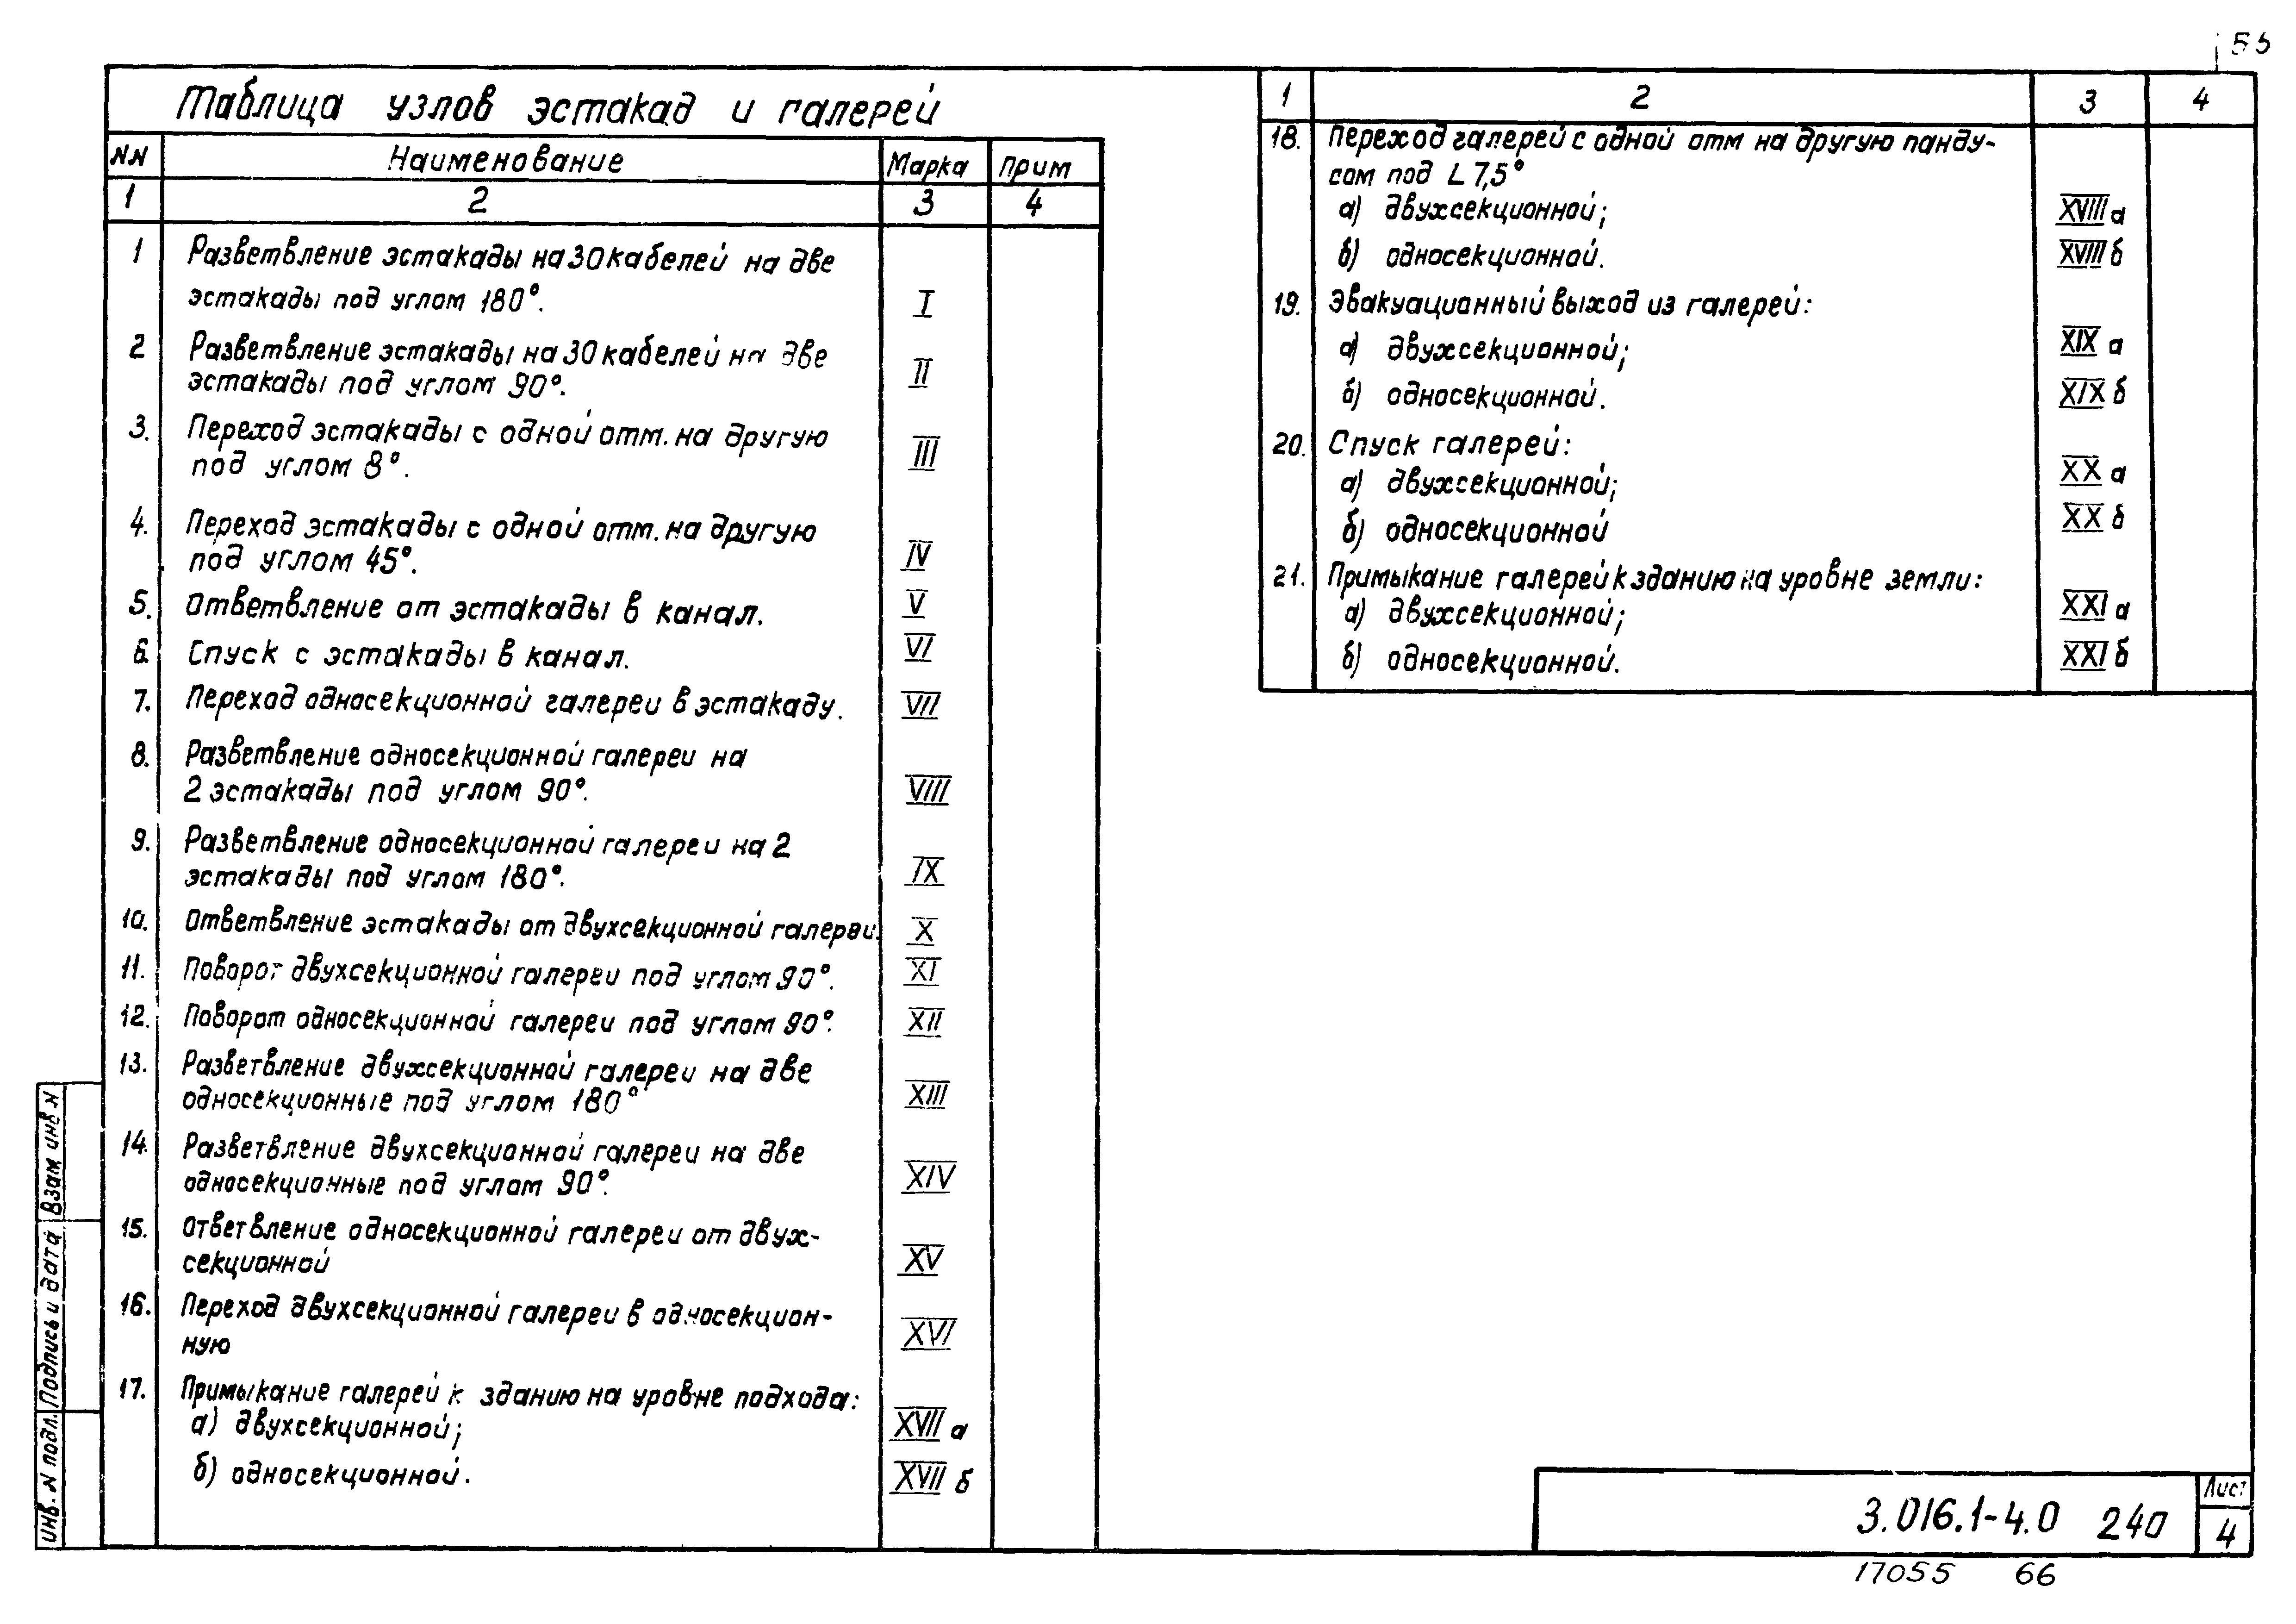 Таблица узлов эстакад и галерей
NN Наименование Марка Прим
1 2 3 4
1 Разветвление эстакады на 30 кабелей на две
эстакады под углом 180°. I
2 Разветвление эстакады на 30 кабелей на две
эстакады под углом 90°. II
3. Переход эстакады с одной отм. на другую
под углом 8°. III
4. Переход эстакады с одной отм. на другую
под углом 45°. IV
5. Ответвление от эстакады в канал. V
6. Спуск с эстакады в канал. VI
7. Переход односекционной галереи в эстакаду. VII
8. Разветвление односекционной галереи на
2 эстакады под углом 90°. VIII
9. Разветвление односекционной галереи на 2
эстакады под углом 180°. IX
10. Ответвление эстакады от двухсекционной галереи. X
11. Поворот двухсекционной галереи под углом 90°. XI
12. Поворот односекционной галереи под углом 90°. XII
13. Разветвление двухсекционной галереи на две
односекционные под углом 180° XIII
14. Разветвление двухсекционной галереи на две
односекционные под углом 90°. XIV
15. Ответвление односекционной галереи от двух-
секционной XV
16. Переход двухсекционной галереи в односекцион-
ную XVI
17. Примыкание галерей к зданию на уровне подхода:
а) двухсекционной; XVII а
б) односекционной. XVII б
1 2 3 4
18. Переход галерей с одной отм на другую панду-
сом под L 7,5°
а) двухсекционной; XVIII а
б) односекционной. XVIII б
19. Эвакуационный выход из галерей:
а) двухсекционной; XIX а
б) односекционной. XIX б
20. Спуск галерей:
а) двухсекционной; XX а
б) односекционной XX б
21. Примыкание галерей к зданию на уровне земли:
а) двухсекционной; XXI а
б) односекционной. XXI б
Инв. N подл. Подпись и дата Взам инв N
3.016.1-4.0 240
Лист
4
17055 66